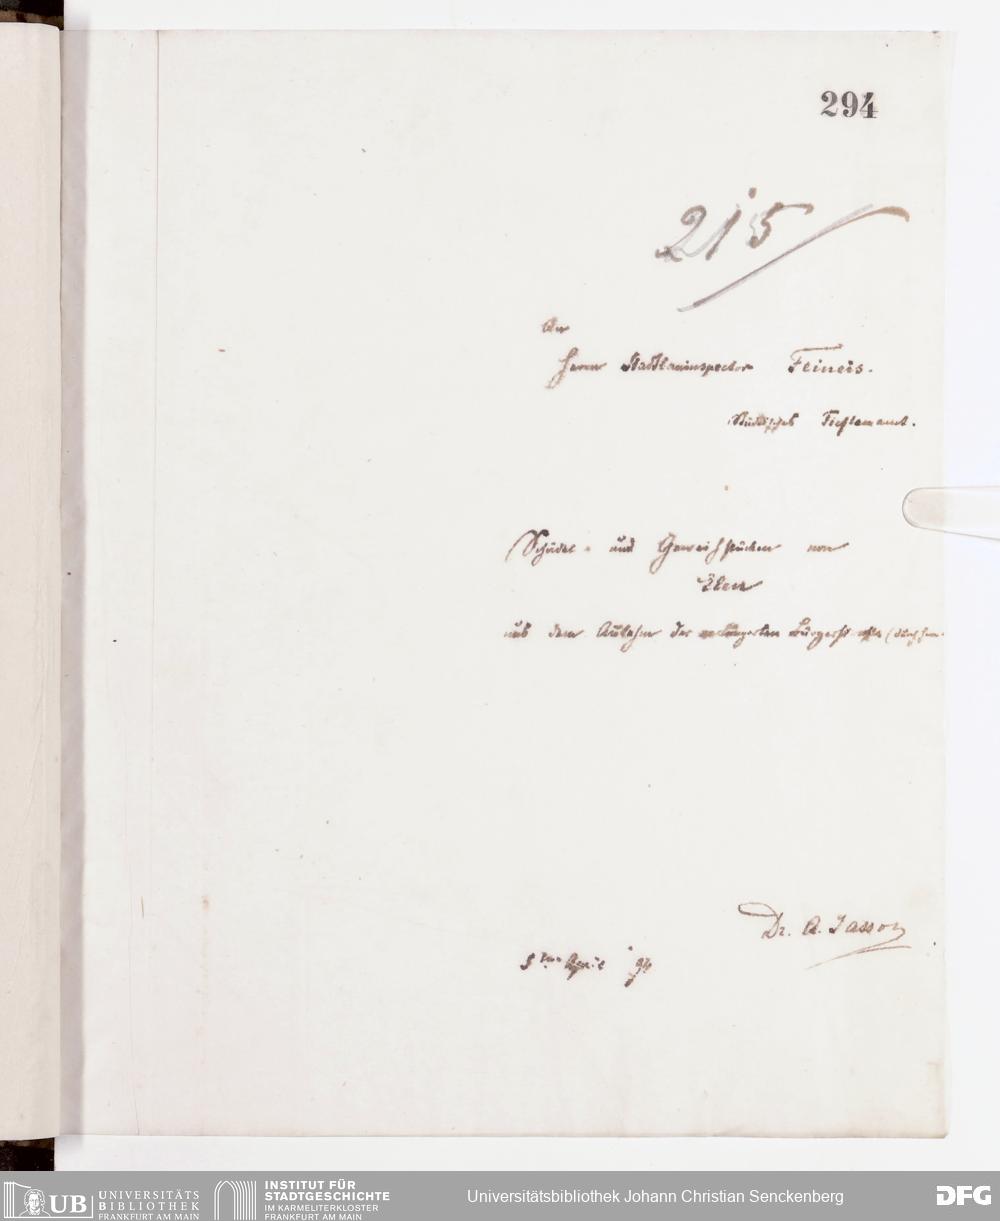 294
215
An
Herrn Stadtbauinspector Feineis.
Städtisches Tiefbauamt.
Schädel- und Geweihstücken von
Elen
aus dem der verlängerten
Dr. A. Jassoy
5ten April 94
UB UNIVERSITÄTS
BIBLIOTHEK
FRANKFURT AM MAIN
INSTITUT FÜR
STADTGESCHICHTE
IM KARMELITERKLOSTER
FRANKFURT AM MAIN
Universitätsbibliothek Johann Christian Senckenberg
DFG